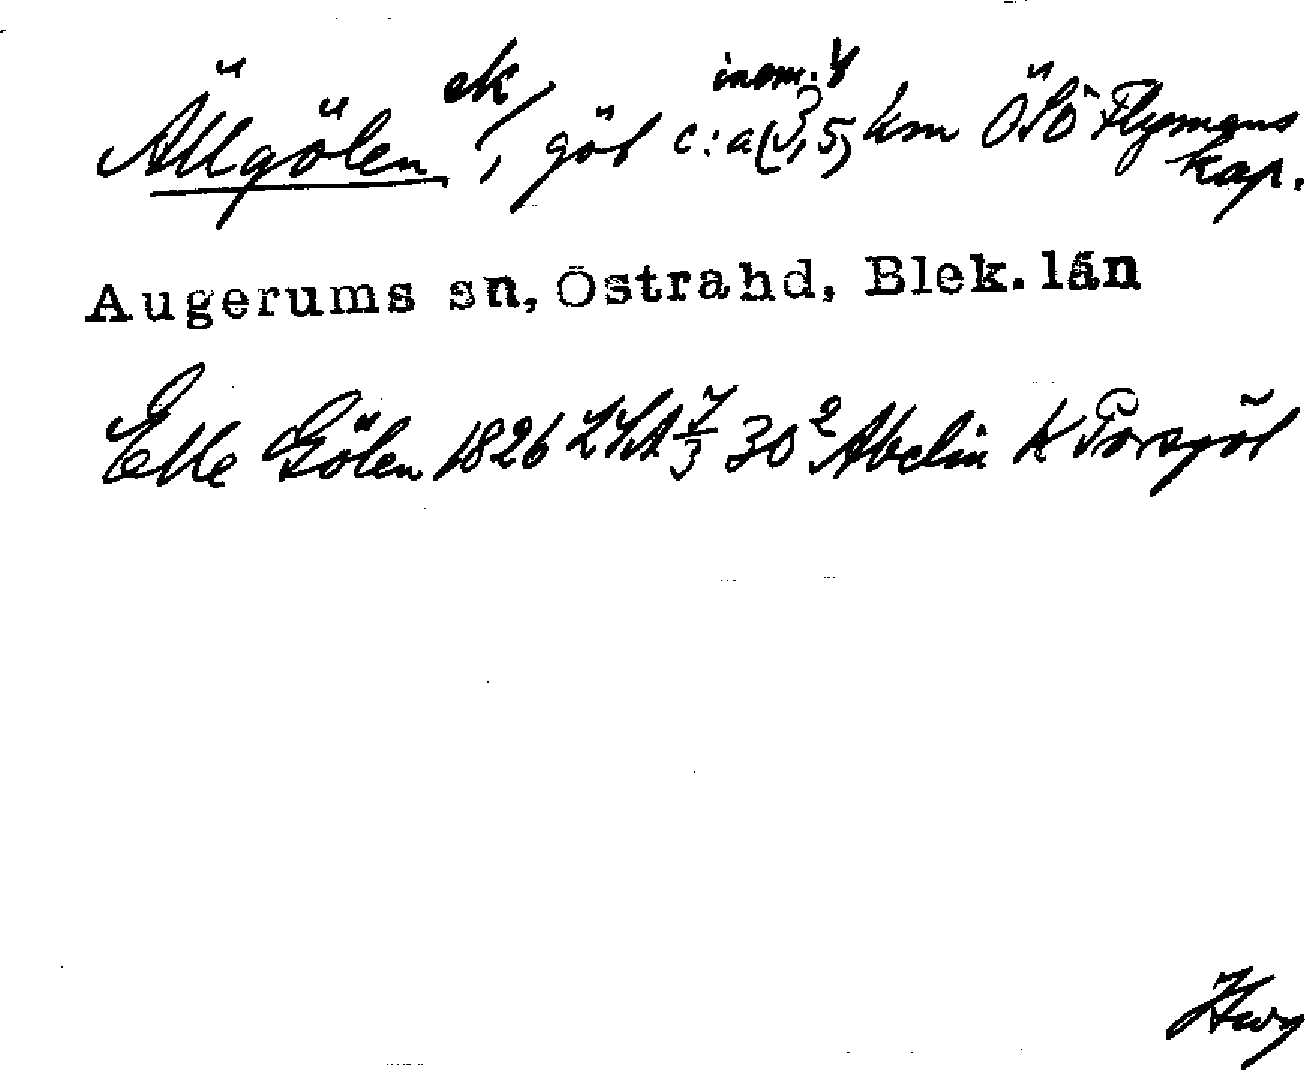 Ällgölen ek, göl c:a 3,5 km ÖSÖ Flymens kap.
Augerums sn, Östra hd, Blek. län
Elle Gölen 1826 LSA 7/3 30² Abelin K Torsjöl